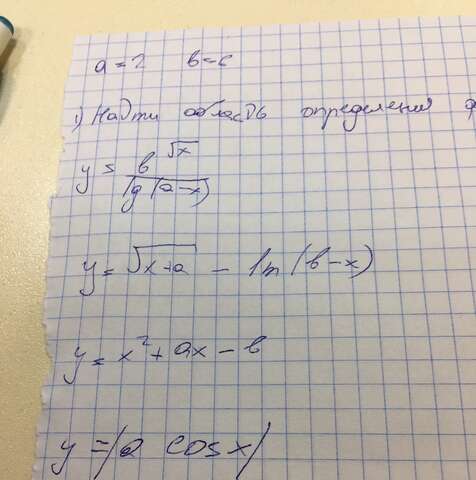 a = 2 в = 6
1) Найти область определения ф
y = в^√x / lg(a-x)
y = √x+a - ln(в-x)
y = x² + ax - в
y = |a cosx|